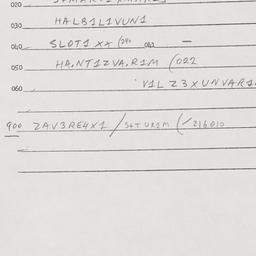 020
030 HALB1L1VUN1
040 SLOT1 XX (040 063 —
050 HA,NT1ZVA,R1M (022
060 V1L Z3XUNVAR1
900 ZAV3RE4X1 / S&T UR1M (/216.010